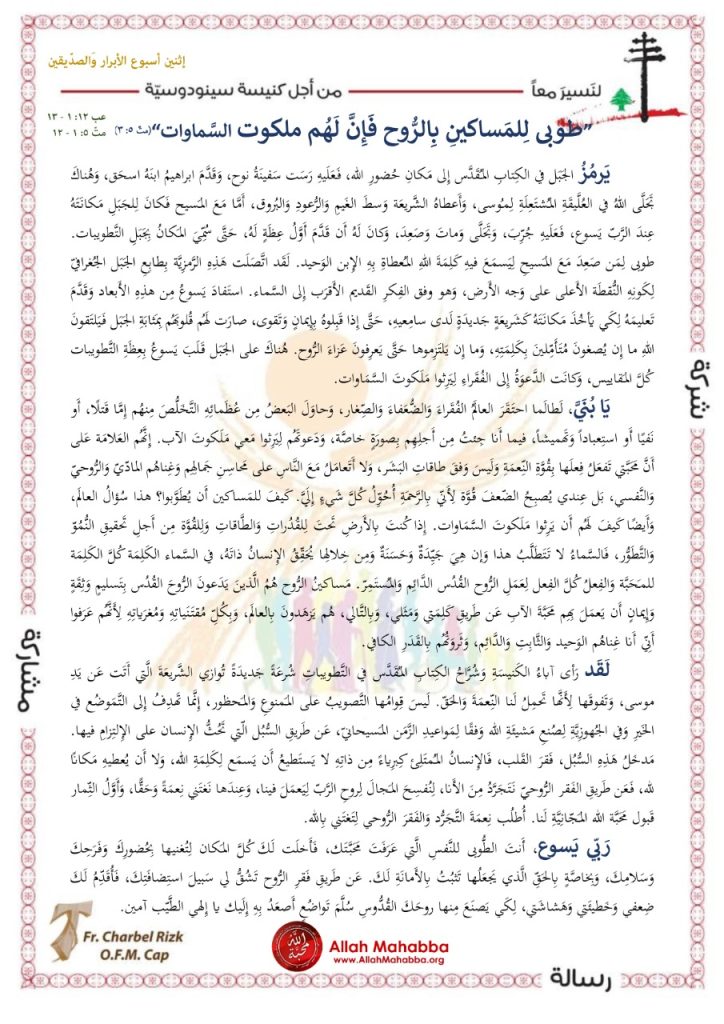 إثنين أسبوع الأبرار وَالصدّيقين
لنَسيرَ معاً
من أجل كنيسة سينودوسيّة
عب ١٢: ١ - ١٣
متّ ٥: ١ - ١٢
”طوبى لِلمَساكينِ بِالرُّوح فَإِنَّ لَهُم ملكوت السَّماوات“ (متّ ٥: ٣)
يَرمُزُ الجَبَل في الكِتابِ المـُقَدَّس إلى مَكانِ حُضورِ الله، فَعَلَيهِ رَسَت سَفينَةُ نوح، وَقَدَّمَ ابراهيمُ ابنَهُ اسحَق، وَهُناكَ
تَجَلَّى اللهُ في العُلَّيقَةِ المـُشتَعِلَةِ لِمُوسى، وَأعطاهُ الشَّريعَة وَسطَ الغَيمِ وَالرُّعودِ وَالبُروق، أمَّا مَعَ المسيح فَكانَ لِلجَبَلِ مَكانَتَهُ
عِندَ الرَّبّ يَسوع، فَعَلَيهِ جُرِّبَ، وَتَجَلَّى وَماتَ وَصَعِدَ، وَكانَ لَهُ أن قَدَّمَ أوَّلُ عِظَةٍ لَهُ، حَتَّى سُمِّيَ المَكانُ بِجَبَلِ التَّطويبات.
طوبى لِمَن صَعِدَ مَعَ المَسيحِ لِيَسمَع فيه كَلِمَةَ اللهِ المـُعطاةِ بِهِ الإبن الوَحيد. لَقَد اتَّصَلَت هَذِهِ الرَّمزِيَّة بِطابِعِ الجَبَل الجُغرافيّ
لِكَونِهِ النُّقطَةَ الأعلى على وَجه الأرض، وَهو وفق الفِكرِ القَديم الأقرَب إلى السَّماء. استَفادَ يَسوعُ مِن هذِهِ الأبعاد وَقَدَّمَ
تَعليمَهُ لِكَي يَأخُذَ مَكانَتَهُ كَشَريعَةٍ جَديدَةٍ لَدى سامِعيهِ، حَتَّى إذا قَبِلوهُ بِإيمانٍ وَتَقوى، صارَت لَهُم قُلوبَهُم بِمَثابَةِ الجَبَل فَيَلتَقونَ
اللهِ ما إن يُصغونَ مُتَأمِّلينَ بِكَلِمَتِهِ، وَما إن يَلتَزِموها حَتَّى يَعرِفونَ عَزاءَ الرُّوح. هُناكَ على الجَبَل قَلَبَ يَسوعُ بِعِظَةِ التَّطويبات
كُلَّ المَقاييس، وَكانَت الدَّعوَةُ إلى الفُقَراءِ لِيَرِثوا مَلَكوتَ السَّمَاوات.
يَا بُنَيَّ، لَطالَما احتَقَرَ العالَمُ الفُقَراءَ وَالضُّعَفاءَ وَالصِّغار، وَحاوَلَ البَعضُ مِن عُظَمائِهِ التَّخَلُّصَ مِنهُم إمَّا قَتلًا، أو
نَفيًا أو استِعباداً وَتَهميشاً، فيما أنا جئتُ مِن أجلِهِم بِصورَةٍ خاصَّة، وَدَعوتُهُم لِيَرِثوا مَعي مَلَكوتَ الآب. إنَّهُم العَلامَة على
أنَّ مَحَبَّتي تَفعَلُ فِعلَها بِقُوَّةِ النِّعمَةِ وَلَيسَ وَفقَ طاقاتِ البَشَر، وَلا أتَعامَلُ مَعَ النَّاسِ على مَحاسِنِ جَمالِهِم وَغِناهُم المادّيّ وَالرُّوحيّ
وَالنَّفسي، بَل عِندي يُصبِحُ الضّعفَ قُوَّة لِأنّي بِالرَّحمَةِ أُحَوِّلُ كُلَّ شَيءٍ إلَيَّ. كَيفَ لِلمَساكين أن يُطَوَّبوا؟ هذا سُؤالُ العالَم،
وَأيضًا كَيفَ لَهُم أن يَرِثوا مَلَكوتَ السَّمَاوات. إذا كُنتَ بِالأرضِ تَحتَ لِلقُدُراتِ وَالطَّاقاتِ وَلِلقُوَّة مِن أجلِ تَحقيقِ النُّمُوّ
وَالتَّطَوُّر، فَالسَّماءُ لا تَتَطَلَّبُ هذا وَإن هِيَ جَيِّدَةٌ وَحَسَنَةٌ وَمِن خِلالِها يُحَقِّقُ الإنسانُ ذاتَهُ، في السماء الكَلِمَة كُلَّ الكَلِمَة
للمَحَبَّة وَالفِعلُ كُلَّ الفِعل لِعَمَلِ الرُّوح القُدُس الدَّائِم وَالمـُستَمِرّ. مَساكينُ الرُّوح هُمُ الَّذينَ يَدَعونَ الرُّوحَ القُدُس بِتَسليمٍ وَثِقَةٍ
وَإيمانٍ أن يَعمَلَ بِهِم مَحَبَّةَ الآبِ عَن طَريقِ كَلِمَتي وَمَثَلي، وَبِالتَّالي، هُم يَزهَدونَ بِالعالَم، وَبِكُلِّ مُقتَنَياتِهِ وَمُغرَياتِهِ لِأنَّهُم عَرَفوا
أنّي أنا غِناهُم الوَحيد وَالثَّابِت وَالدَّائِم، وَثَروَتُهُم بِالقَدَرِ الكافي.
لَقَد رَأى آباءُ الكَنيسَةِ وَشُرَّاحُ الكِتابِ المـُقَدَّس في التَّطويباتِ شُرعَةً جَديدَةً تُوازي الشَّريعَةَ الَّتي أتَت عَن يَدِ
موسى، وَتَفوقَها لِأنَّها تَحمِلُ لنا النِّعمَةَ وَالحَقّ. لَيسَ قِوامُها التَّصويبُ على المَمنوعِ وَالمَحظور، إنَّما تَهدِفُ إلى التَّمَوضُعِ في
الخَيرِ وَفي الجُهوزِيَّة لِصُنعِ مَشيئَةِ اللهِ وَفقًا لِمَواعيدِ الزَّمَنِ المَسيحانيّ، عَن طَريقِ السُّبُلِ الَّتي تَحُثُّ الإنسان على الإلتِزامِ فيها.
مَدخَلُ هَذِهِ السُّبُل، فَقرَ القَلب، فَالإنسانُ المُمتَلِئُ كِبرِياءً مِن ذاتِهِ لا يَستَطيعُ أن يَسمَعَ لِكَلِمَةِ الله، وَلا أن يُعطيهِ مَكانًا
لله، فَعَن طَريقِ الفَقر الرُّوحيّ نَتَجَرَّدُ مِنَ الأنا، لِنُفسِحَ المَجالَ لِروحِ الرَّبّ لِيَعمَلَ فينا، وَعِندَها نَغتَني نِعمَةً وَحَقًّا، وَأوَّلُ الثِّمار
قَبول مَحَبَّة الله المَجَّانِيَّةَ لَنا. أُطلُب نِعمَةَ التَّجَرُّدِ وَالفَقرَ الرُّوحي لِتَغتَني بِالله.
رَبّي يَسوع، أنتَ الطُّوبى للنَّفسِ الَّتي عَرَفَت مَحَبَّتَك، فَأخلَت لَكَ كُلَّ المَكان لِتُغنيها بِحُضورِكَ وَفَرَحِكَ
وَسَلامِكَ، وَبِخاصَّةٍ بِالحَقّ الَّذي يَجعَلُها تَثبُتُ بِالأمانَةِ لَكَ. عَن طَريقِ فَقرِ الرُّوح تَشُقُّ لي سَبيلَ استِضافَتِكَ، فَأُقَدِّمُ لَكَ
ضِعفي وَخَطيئَتي وَهَشاشَتي، لِكَي يَصنَعَ مِنها روحَكَ القُدُّوسِ سُلَّمَ تَواضُعٍ أصعَدُ بِهِ إلَيكَ يا إلهي الطَّيِّب آمين.
شركة
مشاركة
رسالة
Fr. Charbel Rizk
O.F.M. Cap
الله محبة
Allah Mahabba
www.AllahMahabba.org